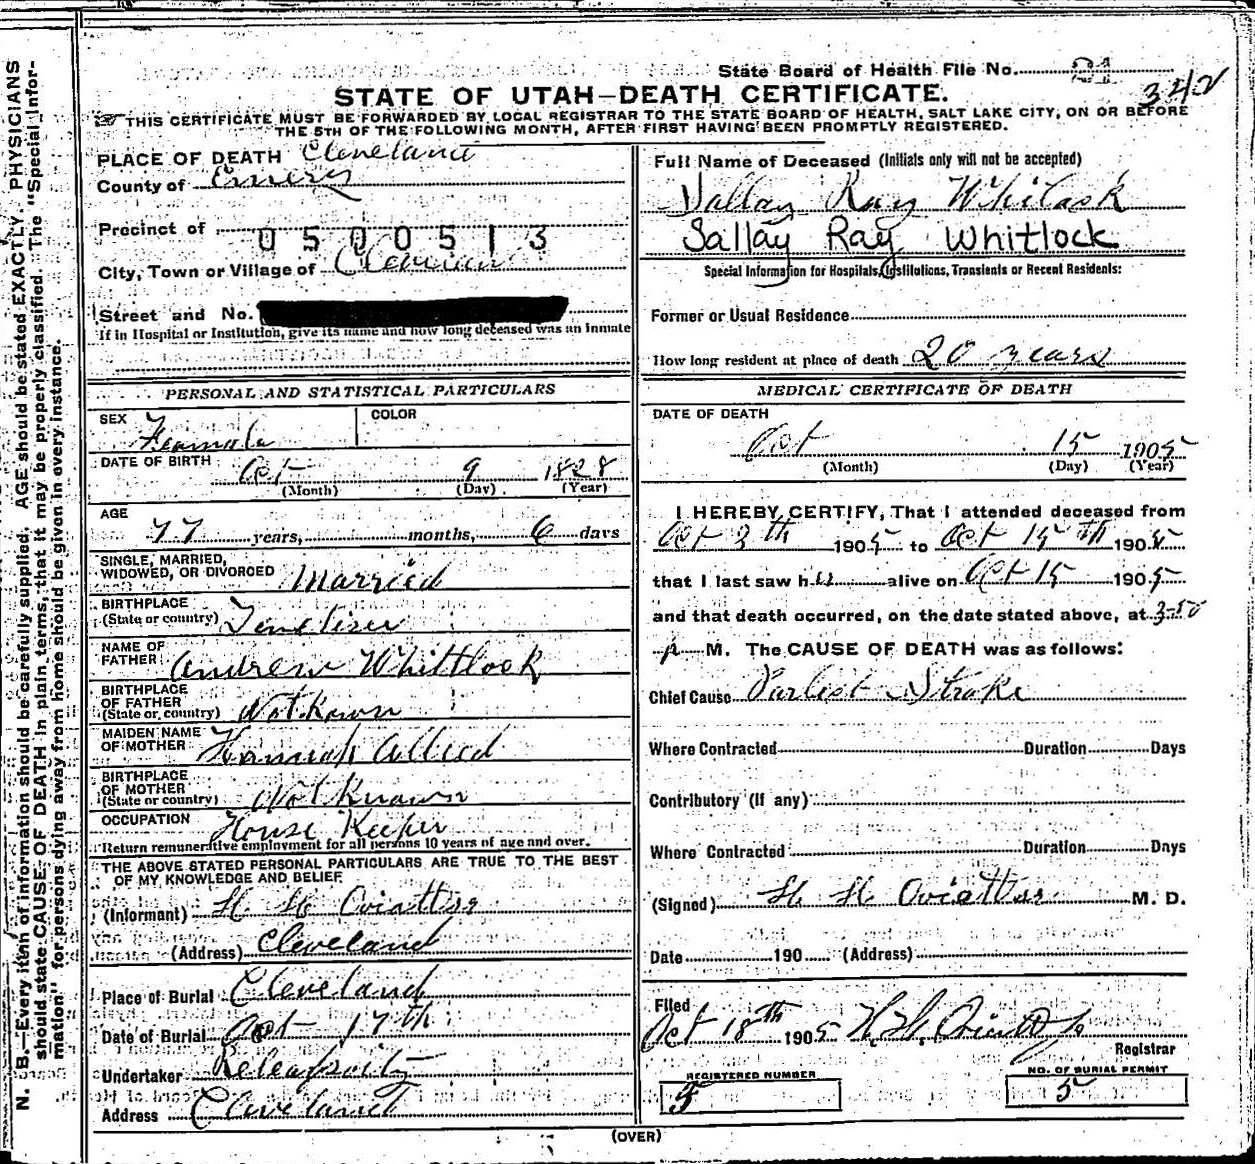 N. B.—Every item of information should be carefully supplied. AGE should be stated EXACTLY. PHYSICIANS
should state CAUSE OF DEATH in plain terms, that it may be properly classified. The "Special Infor-
mation" for persons dying away from home should be given in every instance.
State Board of Health File No. 21
342
STATE OF UTAH—DEATH CERTIFICATE.
THIS CERTIFICATE MUST BE FORWARDED BY LOCAL REGISTRAR TO THE STATE BOARD OF HEALTH, SALT LAKE CITY, ON OR BEFORE
THE 5TH OF THE FOLLOWING MONTH, AFTER FIRST HAVING BEEN PROMPTLY REGISTERED.
PLACE OF DEATH Cleveland
County of Emery
Precinct of
0500513
City, Town or Village of
Street and No.
If in Hospital or Institution, give its name and how long deceased was an inmate
PERSONAL AND STATISTICAL PARTICULARS
SEX Feamale COLOR
DATE OF BIRTH Oct 9 1828
(Month) (Day) (Year)
AGE
77 years, months, 6 days
SINGLE, MARRIED,
WIDOWED, OR DIVORCED Married
BIRTHPLACE
(State or country)
NAME OF
FATHER Andrew Whittlock
BIRTHPLACE
OF FATHER
(State or country) Not Known
MAIDEN NAME
OF MOTHER Hannah Allred
BIRTHPLACE
OF MOTHER
(State or country) Not Known
OCCUPATION House Keeper
Return remunerative employment for all persons 10 years of age and over.
THE ABOVE STATED PERSONAL PARTICULARS ARE TRUE TO THE BEST
OF MY KNOWLEDGE AND BELIEF
(Informant) H H Oviatt
(Address) Cleveland
Place of Burial Cleveland
Date of Burial Oct 17th
Undertaker
Address Cleveland
Full Name of Deceased (Initials only will not be accepted)
Sallay Ray Whitlock
Sallay Ray Whitlock
Special Information for Hospitals, Institutions, Transients or Recent Residents:
Former or Usual Residence
How long resident at place of death 20 years
MEDICAL CERTIFICATE OF DEATH
DATE OF DEATH
Oct 15 1905
(Month) (Day) (Year)
I HEREBY CERTIFY, That I attended deceased from
Oct 3th 1905 to Oct 15th 1905
that I last saw her alive on Oct 15 1905
and that death occurred, on the date stated above, at 3-50
p M. The CAUSE OF DEATH was as follows:
Chief Cause Stroke
Where Contracted Duration Days
Contributory (If any)
Where Contracted Duration Days
(Signed) H H Oviatt M. D.
Date 190 (Address)
Filed
Oct 18th 1905 H. H. Oviatt
Registrar
REGISTERED NUMBER
5
NO. OF BURIAL PERMIT
5
(OVER)